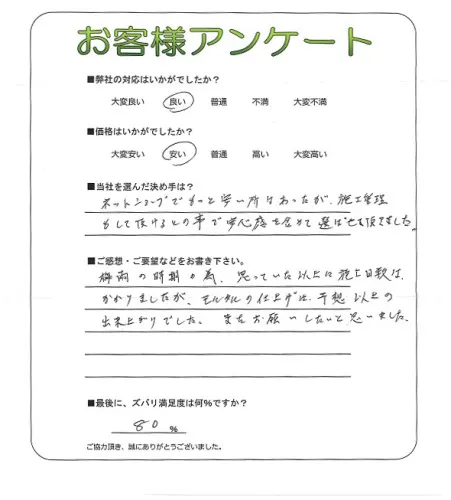 お客様アンケート
■弊社の対応はいかがでしたか?
大変良い 良い 普通 不満 大変不満
■価格はいかがでしたか?
大変安い 安い 普通 高い 大変高い
■当社を選んだ決め手は?
ネットショップでもっと安い所はあったが、施工管理
もして頂けるとの事で安心感を含めて選ばせて頂きました。
■ご感想・ご要望などをお書き下さい。
梅雨の時期の為、思っていた以上に施工日数は、
かかりましたが、モルタルの仕上げは、予想以上の
出来上がりでした。またお願いしたいと思いました。
■最後に、ズバリ満足度は何%ですか?
80 %
ご協力頂き、誠にありがとうございました。